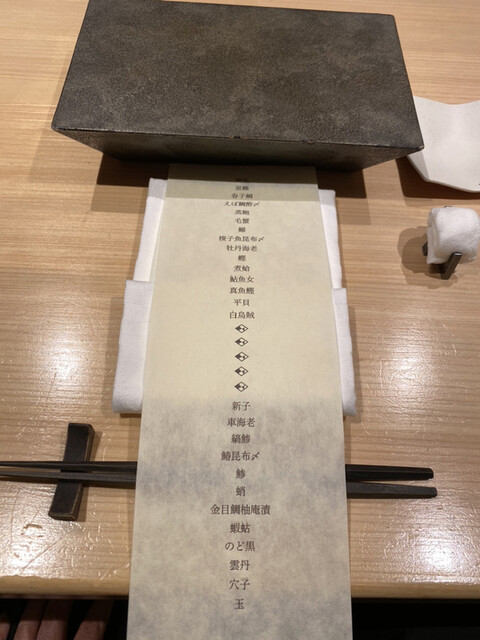 春子鯛
えぼ鯛酢〆
蒸鮑
毛蟹
梭子魚昆布〆
牡丹海老
鰹
煮蛤
鮎魚女
真魚鰹
平貝
白烏賊
新子
車海老
縞鯵
鰆昆布〆
鯵
蛸
金目鯛柚庵漬
蝦蛄
のど黒
雲丹
穴子
玉